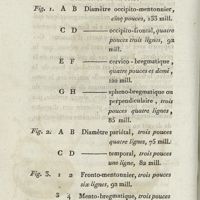 Fig. 1. A B Diamètre occipito-mentonnier,
cinq pouces, 135 mill.
C D —— occipito-frontal, quatre
pouces trois lignes, 92
mill.
E F —— cervico-bregmatique,
quatre pouces et demi,
120 mill.
G H —— spheno-bregmatique ou
perpendiculaire, trois
pouces quatre lignes,
85 mill.
Fig. 2. A B Diamètre pariétal, trois pouces
quatre lignes, 75 mill.
C D —— temporal, trois pouces
une ligne, 82 mill.
Fig. 3. 1 2 Fronto-mentonnier, trois pouces
six lignes, 92 mill.
3 4 Mento-bregmatique, trois pouces